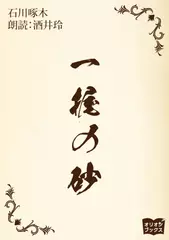 石川啄木
朗読：酒井玲
一握の砂
オリオン
ブックス